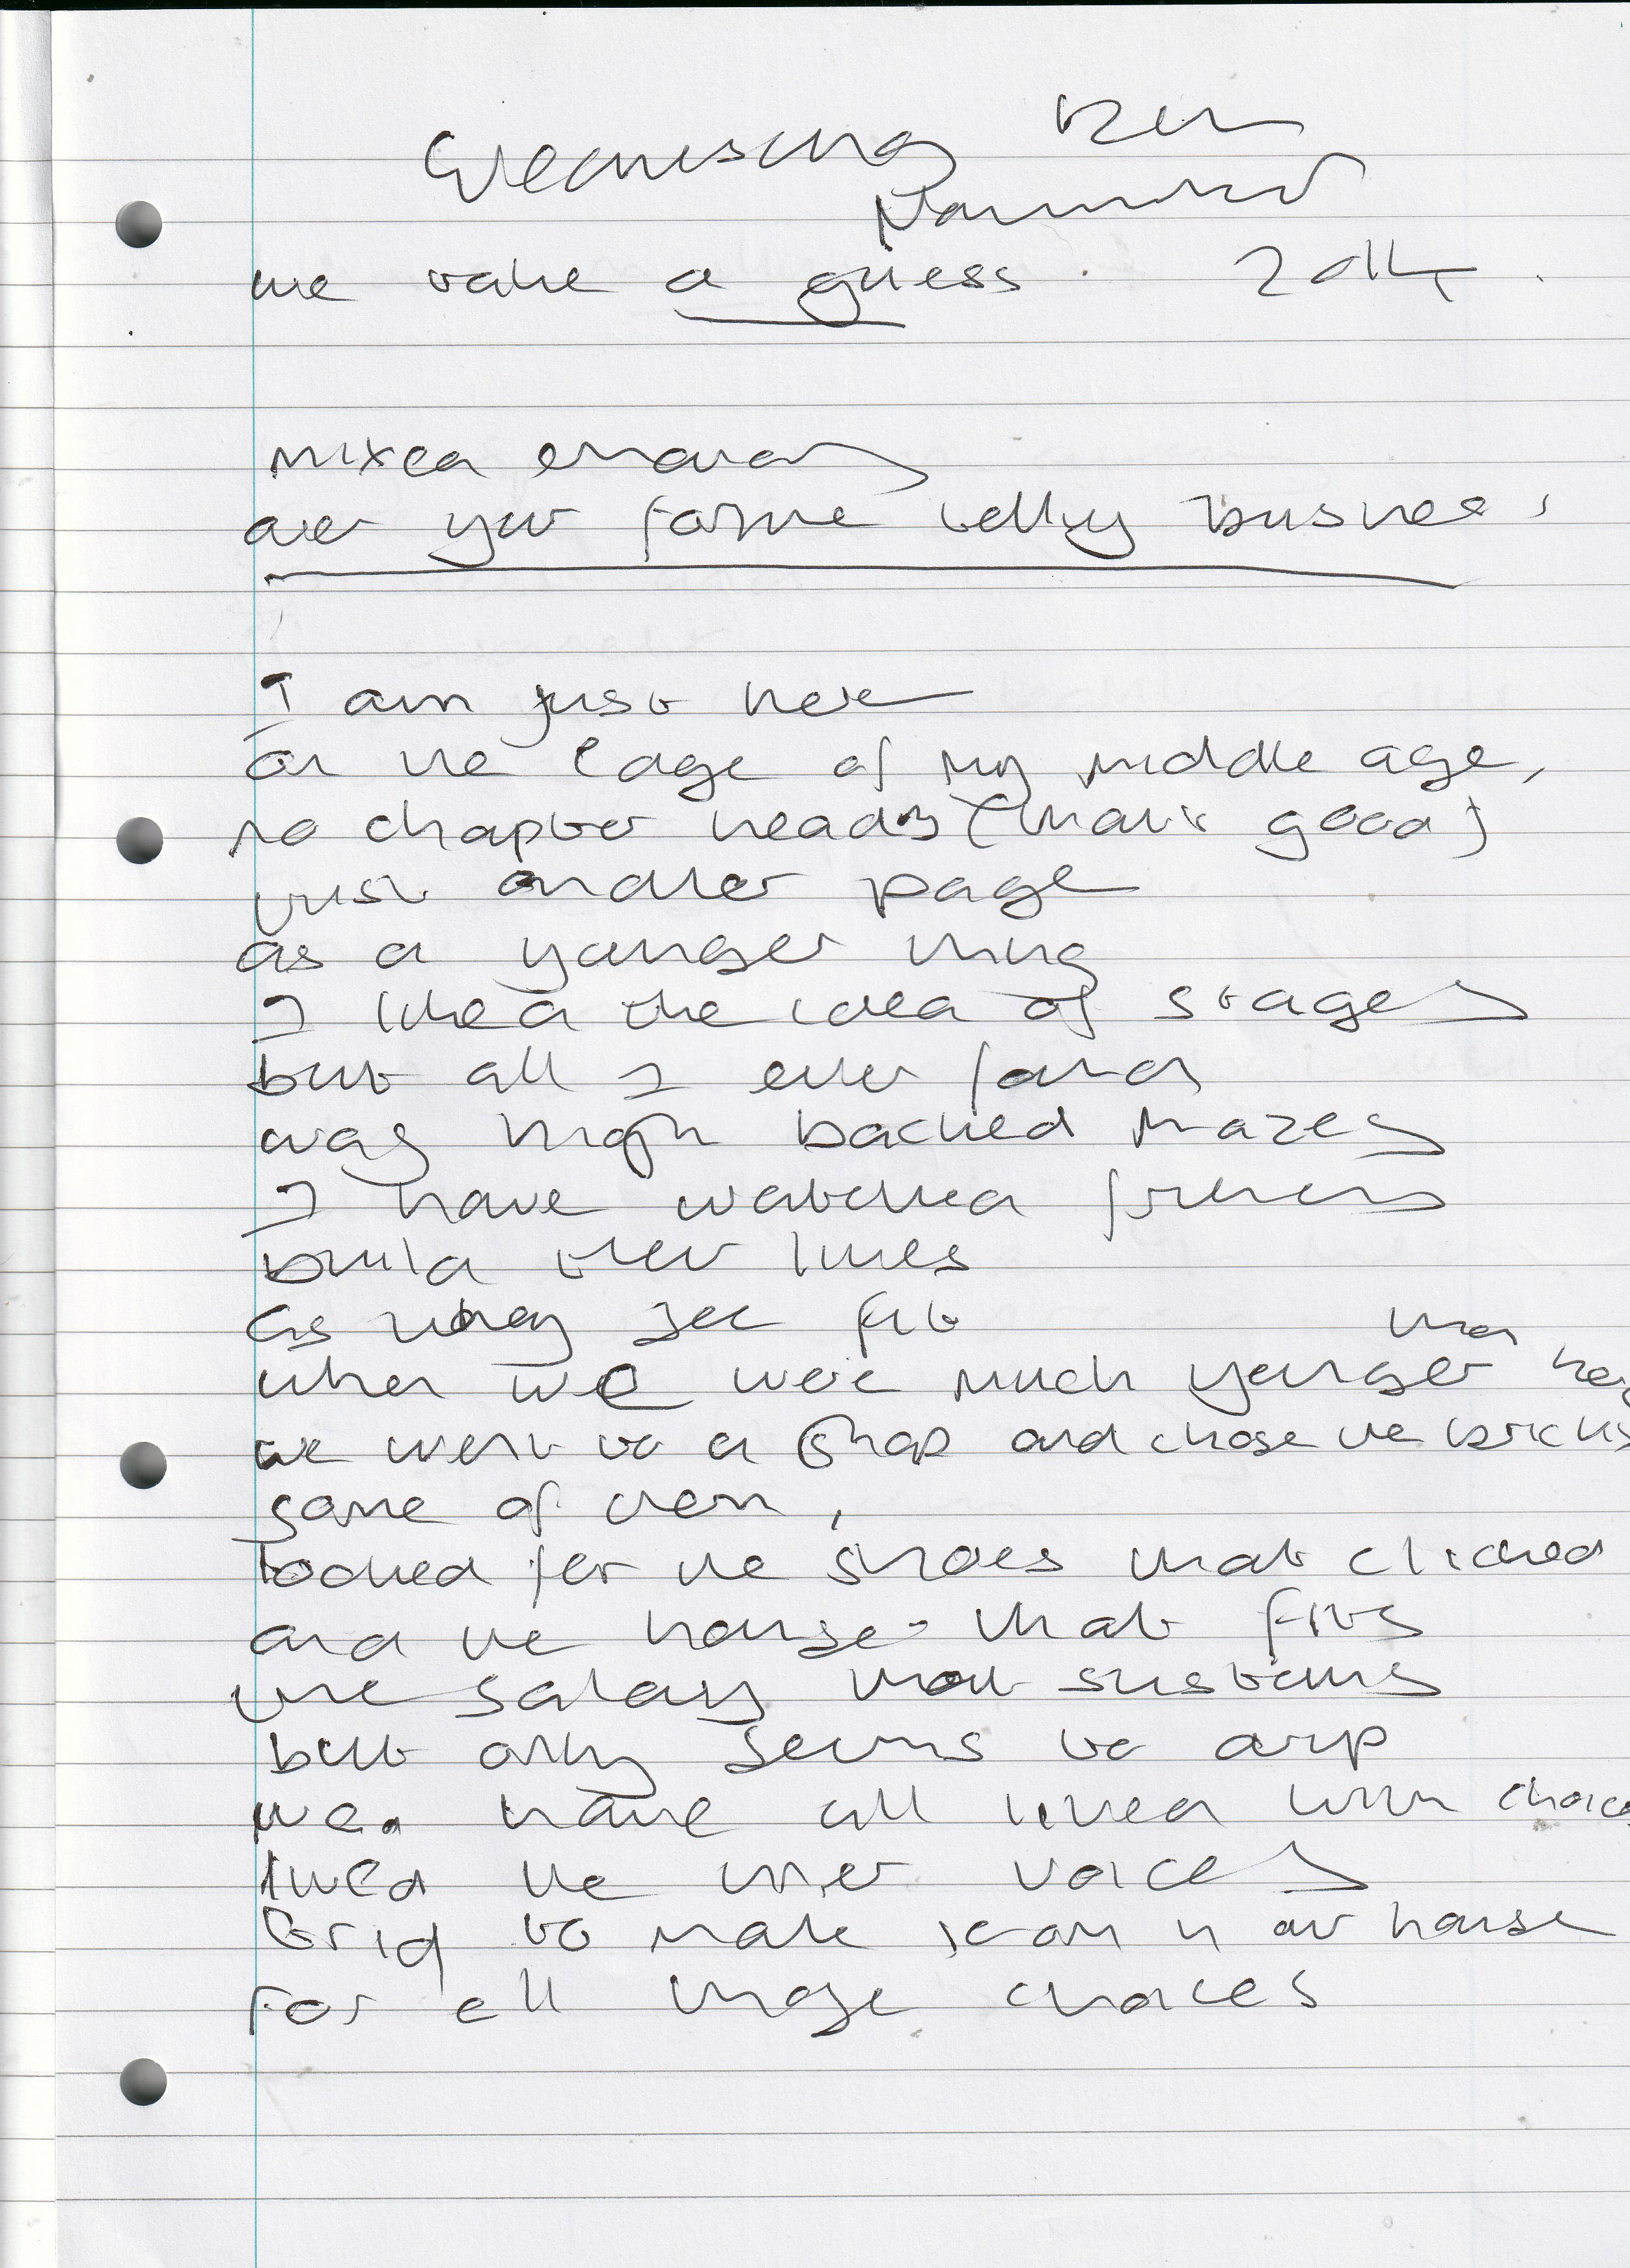 we take a guess.
mixed
over your fortune telling business,
I am just here
on the edge of my middle age,
no chapter heads (that's good)
just another page
as a younger thing
I liked the idea of stages
but all I ever found
was high backed mazes
I have watched friends
build their lives
as they see fit
than
when we were much younger
we went to a shop and chose the bricks
some of them,
looked for the shoes that clicked
and the house that fits
the salary that sustains
but only seems to
have all lived with choices
lived the inner voices
to make room in our house
for all those choices